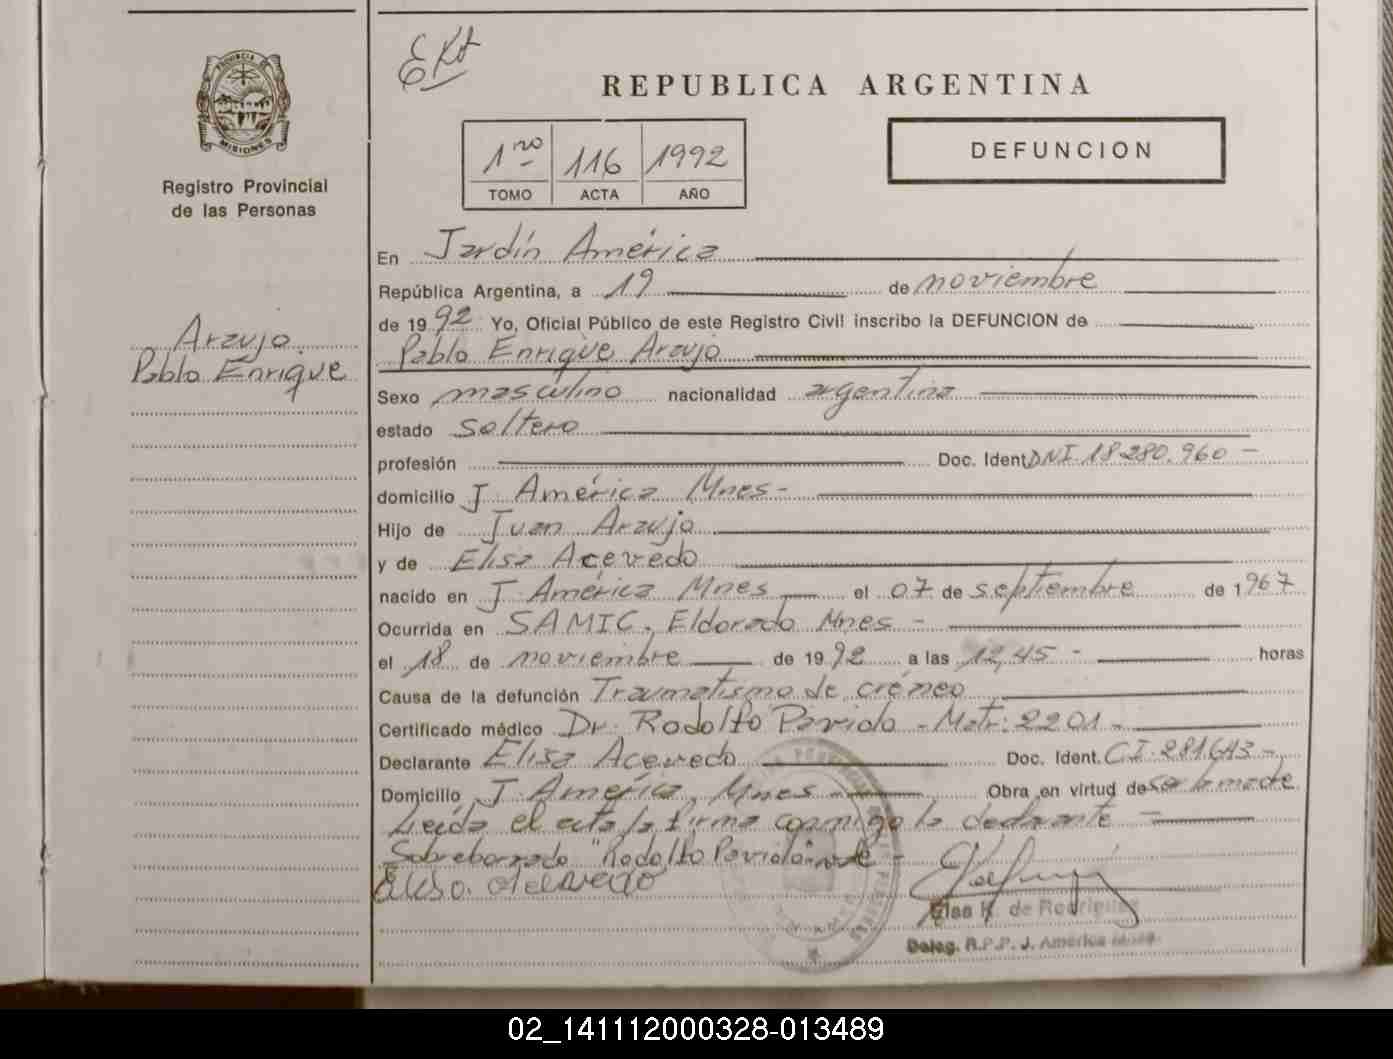 PROVINCIA DE
MISIONES
Registro Provincial
de las Personas
Araujo
Pablo Enrique
REPUBLICA ARGENTINA
1ro 116 1992
TOMO ACTA AÑO
DEFUNCION
En Jardín América
República Argentina, a 19 de noviembre
de 1992 Yo, Oficial Público de este Registro Civil inscribo la DEFUNCION de
Pablo Enrique Araujo
Sexo masculino nacionalidad argentina
estado soltero
profesión Doc. Ident. DNI 18.280.960 -
domicilio J. América Mnes-
Hijo de Juan Araujo
y de Elisa Acevedo
nacido en J. América Mnes el 07 de septiembre de 1967
Ocurrida en SAMIC. Eldorado Mnes -
el 18 de noviembre de 1992 a las 12,45 - horas
Causa de la defunción Traumatismo de cráneo
Certificado médico Dr. Rodolfo Pavido - Matr: 2201 -
Declarante Elisa Acevedo Doc. Ident. CI. 281.643 -
Domicilio J. América, Mnes - Obra en virtud de ser la madre
Leída el acta la firma conmigo la declarante -
Sobreborrado "Rodolfo Pavido" vale -
Elisa Acevedo
Elsa K. de Rodriguez
Deleg. R.P.P. J. América Mnes.
02_141112000328-013489